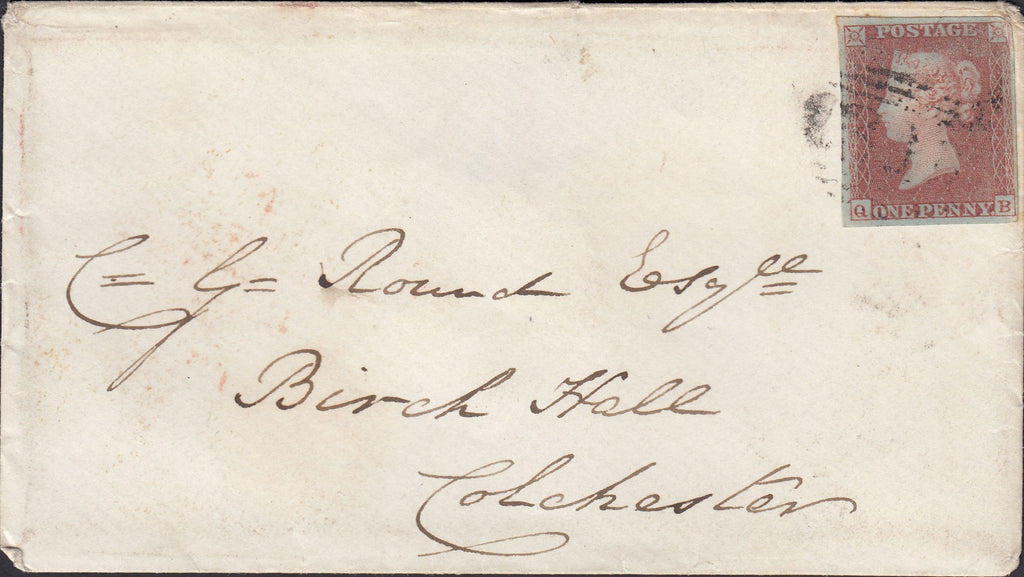 POSTAGE
Q ONE PENNY B
C= G= Round Esqre
Birch Hall
Colchester